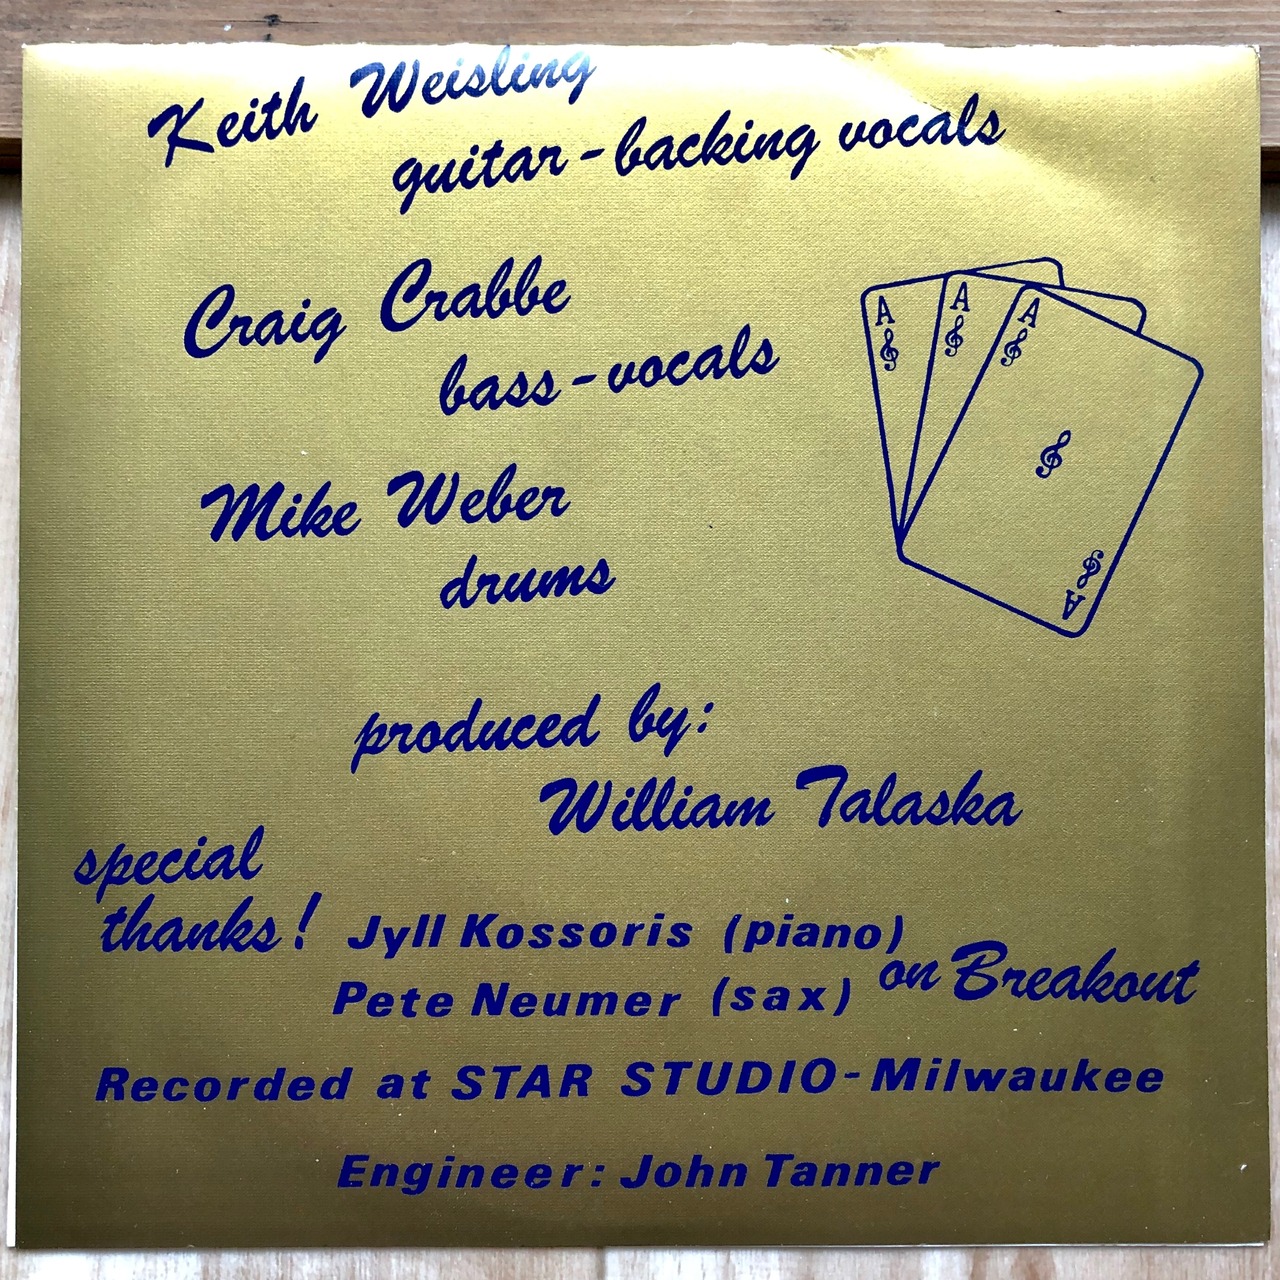 Keith Weisling
guitar - backing vocals
Craig Crabbe
bass - vocals
Mike Weber
drums
A
A
A
A
produced by:
William Talaska
special
thanks!
Jyll Kossoris (piano)
Pete Neumer (sax)
on Breakout
Recorded at STAR STUDIO - Milwaukee
Engineer: John Tanner